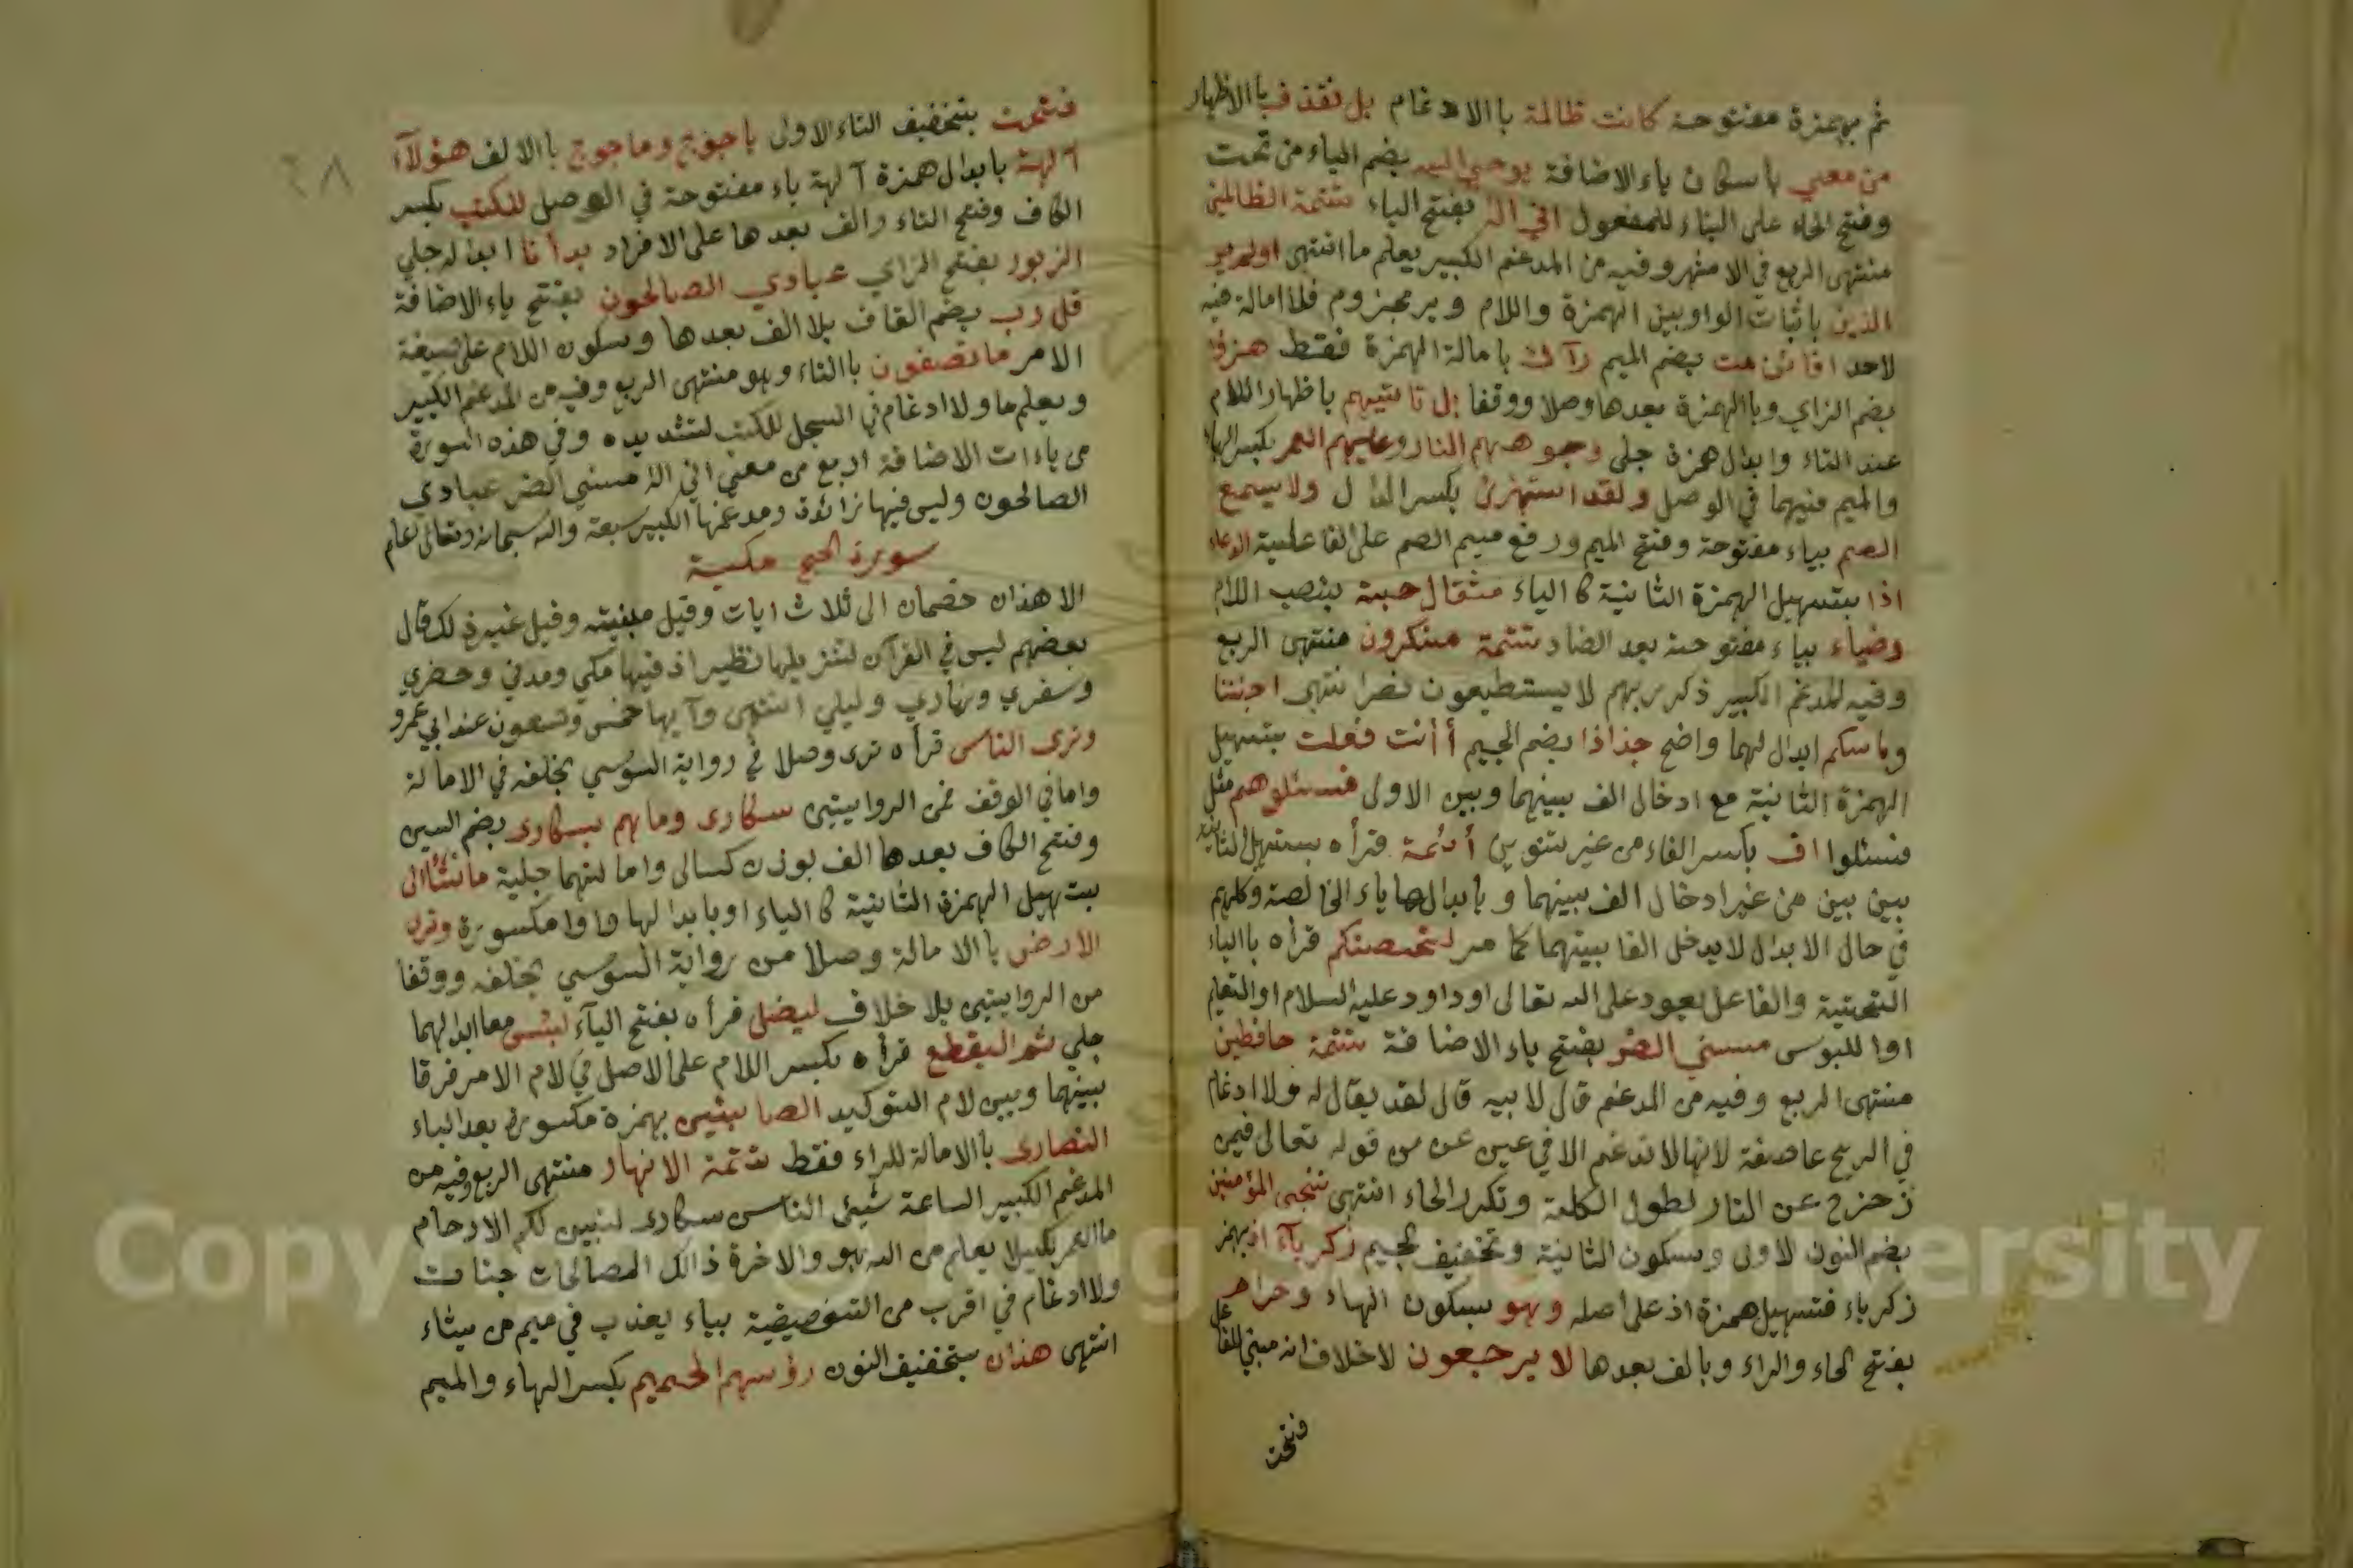 ثم بهمزة مفتوحة كانت ظالمة باالادغام بل نقذف باالاظهار
من معي باسكان ياء الاضافة يوحى اليه بضم الياء من تحت
وفتح الحاء على البناء للمفعول اني اله بفتح الياء تتمة الظالمين
منتهى الربع في الاشهر وفيه من المدغم الكبير يعلم ما انتهى اولم ير
الذين باثبات الواو بين الهمزة واللام وير مجزوم فلا امالة فيه
لاحد افائن مت بضم الميم رآك بامالة الهمزة فقط هزؤا
بضم الزاي وباالهمزة بعدها وصلا ووقفا بل تاتيهم باظهار اللام
عند التاء وابدال همزة جلي وجوههم النار وعليهم العمر بكسر الهاء
والميم فيهما في الوصل ولقد استهزئ بكسر الدال ولا يسمع
الصم بياء مفتوحة وفتح الميم ورفع ميم الصم على الفاعلية الدعاء
اذا بتسهيل الهمزة الثانية كا الياء مثقال حبة بنصب اللام
وضياء بياء مفتوحة بعد الضاد تتمة منكرون منتهى الربع
وفيه المدغم الكبير ذكر ربهم لا يستطيعون نصر انتهى اجئتنا
وباسكم ابدالهما واضح جذاذا بضم الجيم أأنت فعلت بتسهيل
الهمزة الثانية مع ادخال الف بينهما وبين الاولى فسئلوهم مثل
فسئلوا اف بكسر الفاء من غير تنوين أئمة قرأه بتسهيل الثانية
بين بين من غير ادخال الف بينهما و بابدالها ياء الخالصة وكلهم
في حال الابدال لا يدخل الفا بينهما كما مر لتحصنكم قرأه باالياء
التحتية والفاعل يعود على الله تعالى او داود عليه السلام او التعليم
اوا للبوس مسني الضر بفتح ياء الاضافة تتمة حافظين
منتهى الربع وفيه من المدغم قال لابيه قال لقد يقال له ولا ادغام
في الريح عاصفة لانها لا تدغم الا في عين عن من قوله تعالى فمن
زحزح عن النار لطول الكلمة وتكرر الحاء انتهى ننجي المؤمنين
بضم النون الاولى وسكون الثانية وتخفيف الجيم زكريآء اذ بهمز
زكرياء فتسهيل همزة اذ على اصله وهو بسكون الهاء وحرام على
بفتح الحاء والراء وبالف بعدها لا يرجعون لا خلاف انه مبني للفاعل
فتحت
فتحت بتخفيف التاء الاولى ياجوج وماجوج باالالف هؤلآء
آلهة بابدال همزة آلهة ياء مفتوحة في الوصل للكتب بكسر
الكاف وفتح التاء والف بعدها على الافراد بدأنا ابداله جلي
الزبور بفتح الزاي عبادي الصالحون بفتح ياء الاضافة
قل رب بضم القاف بلا الف بعدها وسكون اللام على صيغة
الامر ما تصفون باالتاء وهو منتهى الربع وفيه من المدغم الكبير
ويعلم ما ولا ادغام في السجل للكتب لتشديده وفي هذه السورة
من ياءات الاضافة اربع من معي اني اله مسني الضر عبادي
الصالحون وليس فيها زائدة ومدغمها الكبير سبعة والله سبحانه وتعالى اعلم
سورة الحج مكية
الا هذان خصمان الى ثلاث ايات وقيل مدنية وقيل غير ذلك قال
بعضهم ليس في القرآن لتنزيلها نظير اذ فيها مكي ومدني وحضري
وسفري ونهاري وليلي انتهى وآيها خمس وتسعون عند ابي عمرو
وترى الناس قرأه ترى وصلا في رواية السوسي بخلفه في الامالة
واما في الوقف فمن الروايتين سكارى وما هم بسكارى بضم السين
وفتح الكاف بعدها الف بوزن كسالى وامالتهما جلية ما نشاء الى
بتسهيل الهمزة الثانية كا الياء او بابدالها واوا مكسورة وترى
الارض باالامالة وصلا من رواية السوسي بخلفه ووقفا
من الروايتين بلا خلاف ليضل قرأه بفتح اليآء لبئس معا ابدالهما
جلي ثم اليقطع قرأه بكسر اللام على الاصل في لام الامر فرقا
بينهما وبين لام التوكيد الصابئين بهمزة مكسورة بعد الباء
النصارى باالامالة للراء فقط تتمة الانهار منتهى الربع وفيه من
المدغم الكبير الساعة شيئ الناس سكارى لنبين لكم الارحام
ما العمر لكيلا يعلم من الله هو والاخرة ذالك الصالحات جنات
ولا ادغام في اقرب من التخصيصية بياء يعذب في ميم من يشاء
انتهى هذان بتخفيف النون رؤسهم الحميم بكسر الهاء والميم